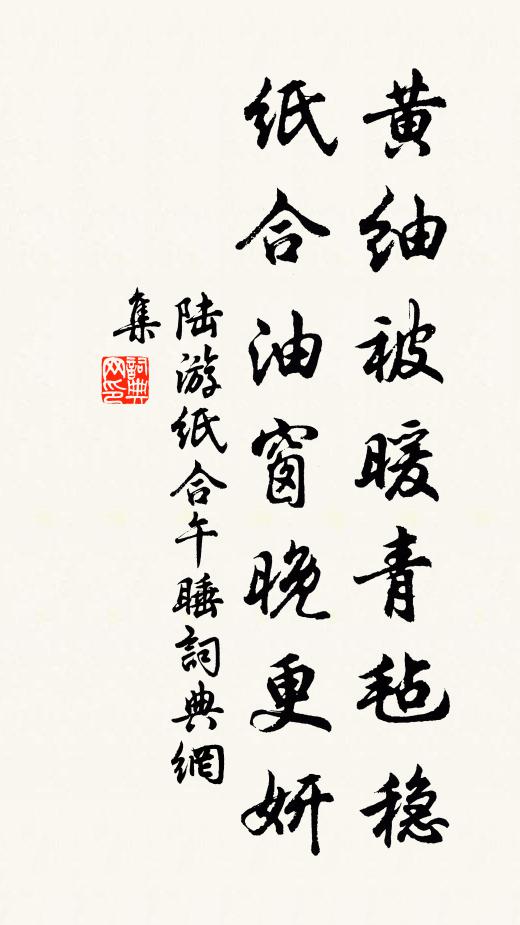 黄紬被暖青毡稳
纸合油窗晚更妍
陆游纸合午睡詞典網
集
詞典网印